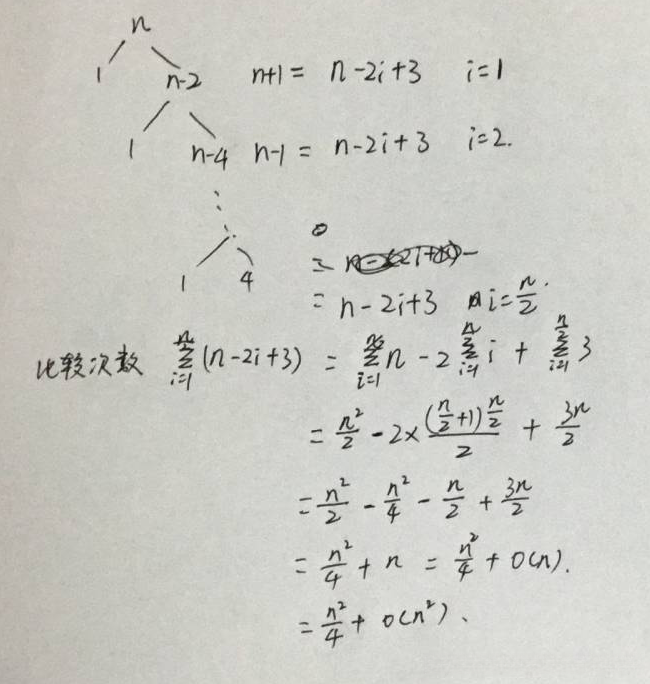 n
1 n-2 n+1 = n-2i+3 i=1
1 n-4 n-1 = n-2i+3 i=2.
⋮
0
1 4 =
= n-2i+3 i=n/2.
比较次数 ∑_{i=1}^{n/2}(n-2i+3) = ∑_{i=1}^{n/2} n - 2∑_{i=1}^{n/2} i + ∑_{i=1}^{n/2} 3
= n²/2 - 2×((n/2+1)n/2)/2 + 3n/2
= n²/2 - n²/4 - n/2 + 3n/2
= n²/4 + n = n²/4 + O(n).
= n²/4 + o(n²).